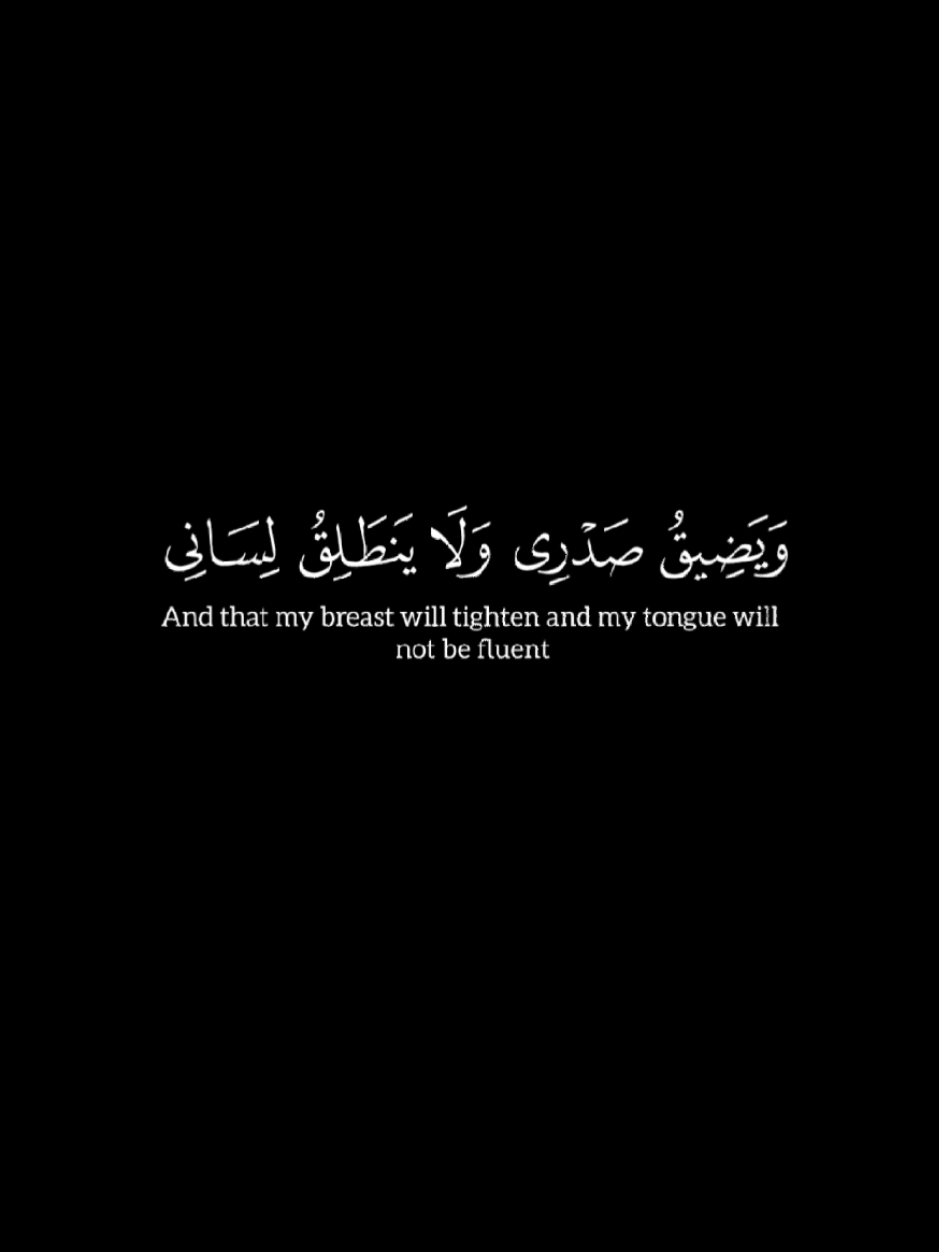 وَيَضِيقُ صَدۡرِى وَلَا يَنطَلِقُ لِسَانِى
And that my breast will tighten and my tongue will
not be fluent